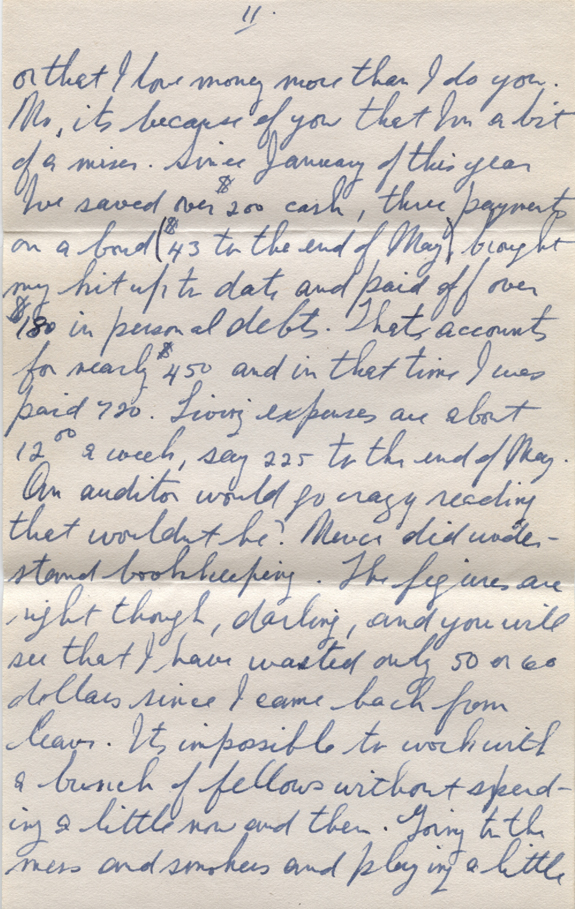 11.
or that I love money more than I do you.
No, its because of you that Im a bit
of a miser. Since January of this year
Ive saved over $200 cash, three payments
on a bond ($43 to the end of May) brought
my kit up to date and paid off over
$180 in personal debts. Thats accounts
for nearly $450 and in that time I was
paid 720. Living expenses are about
12 00 a week, say 225 to the end of May.
An auditor would go crazy reading
that wouldnt he? Never did under-
stand bookkeeping. The figures are
right though, darling, and you will
see that I have wasted only 50 or 60
dollars since I came back from
leave. Its impossible to work with
a bunch of fellows without spend-
ing a little now and then. Going to the
mess and smokers and playing a little